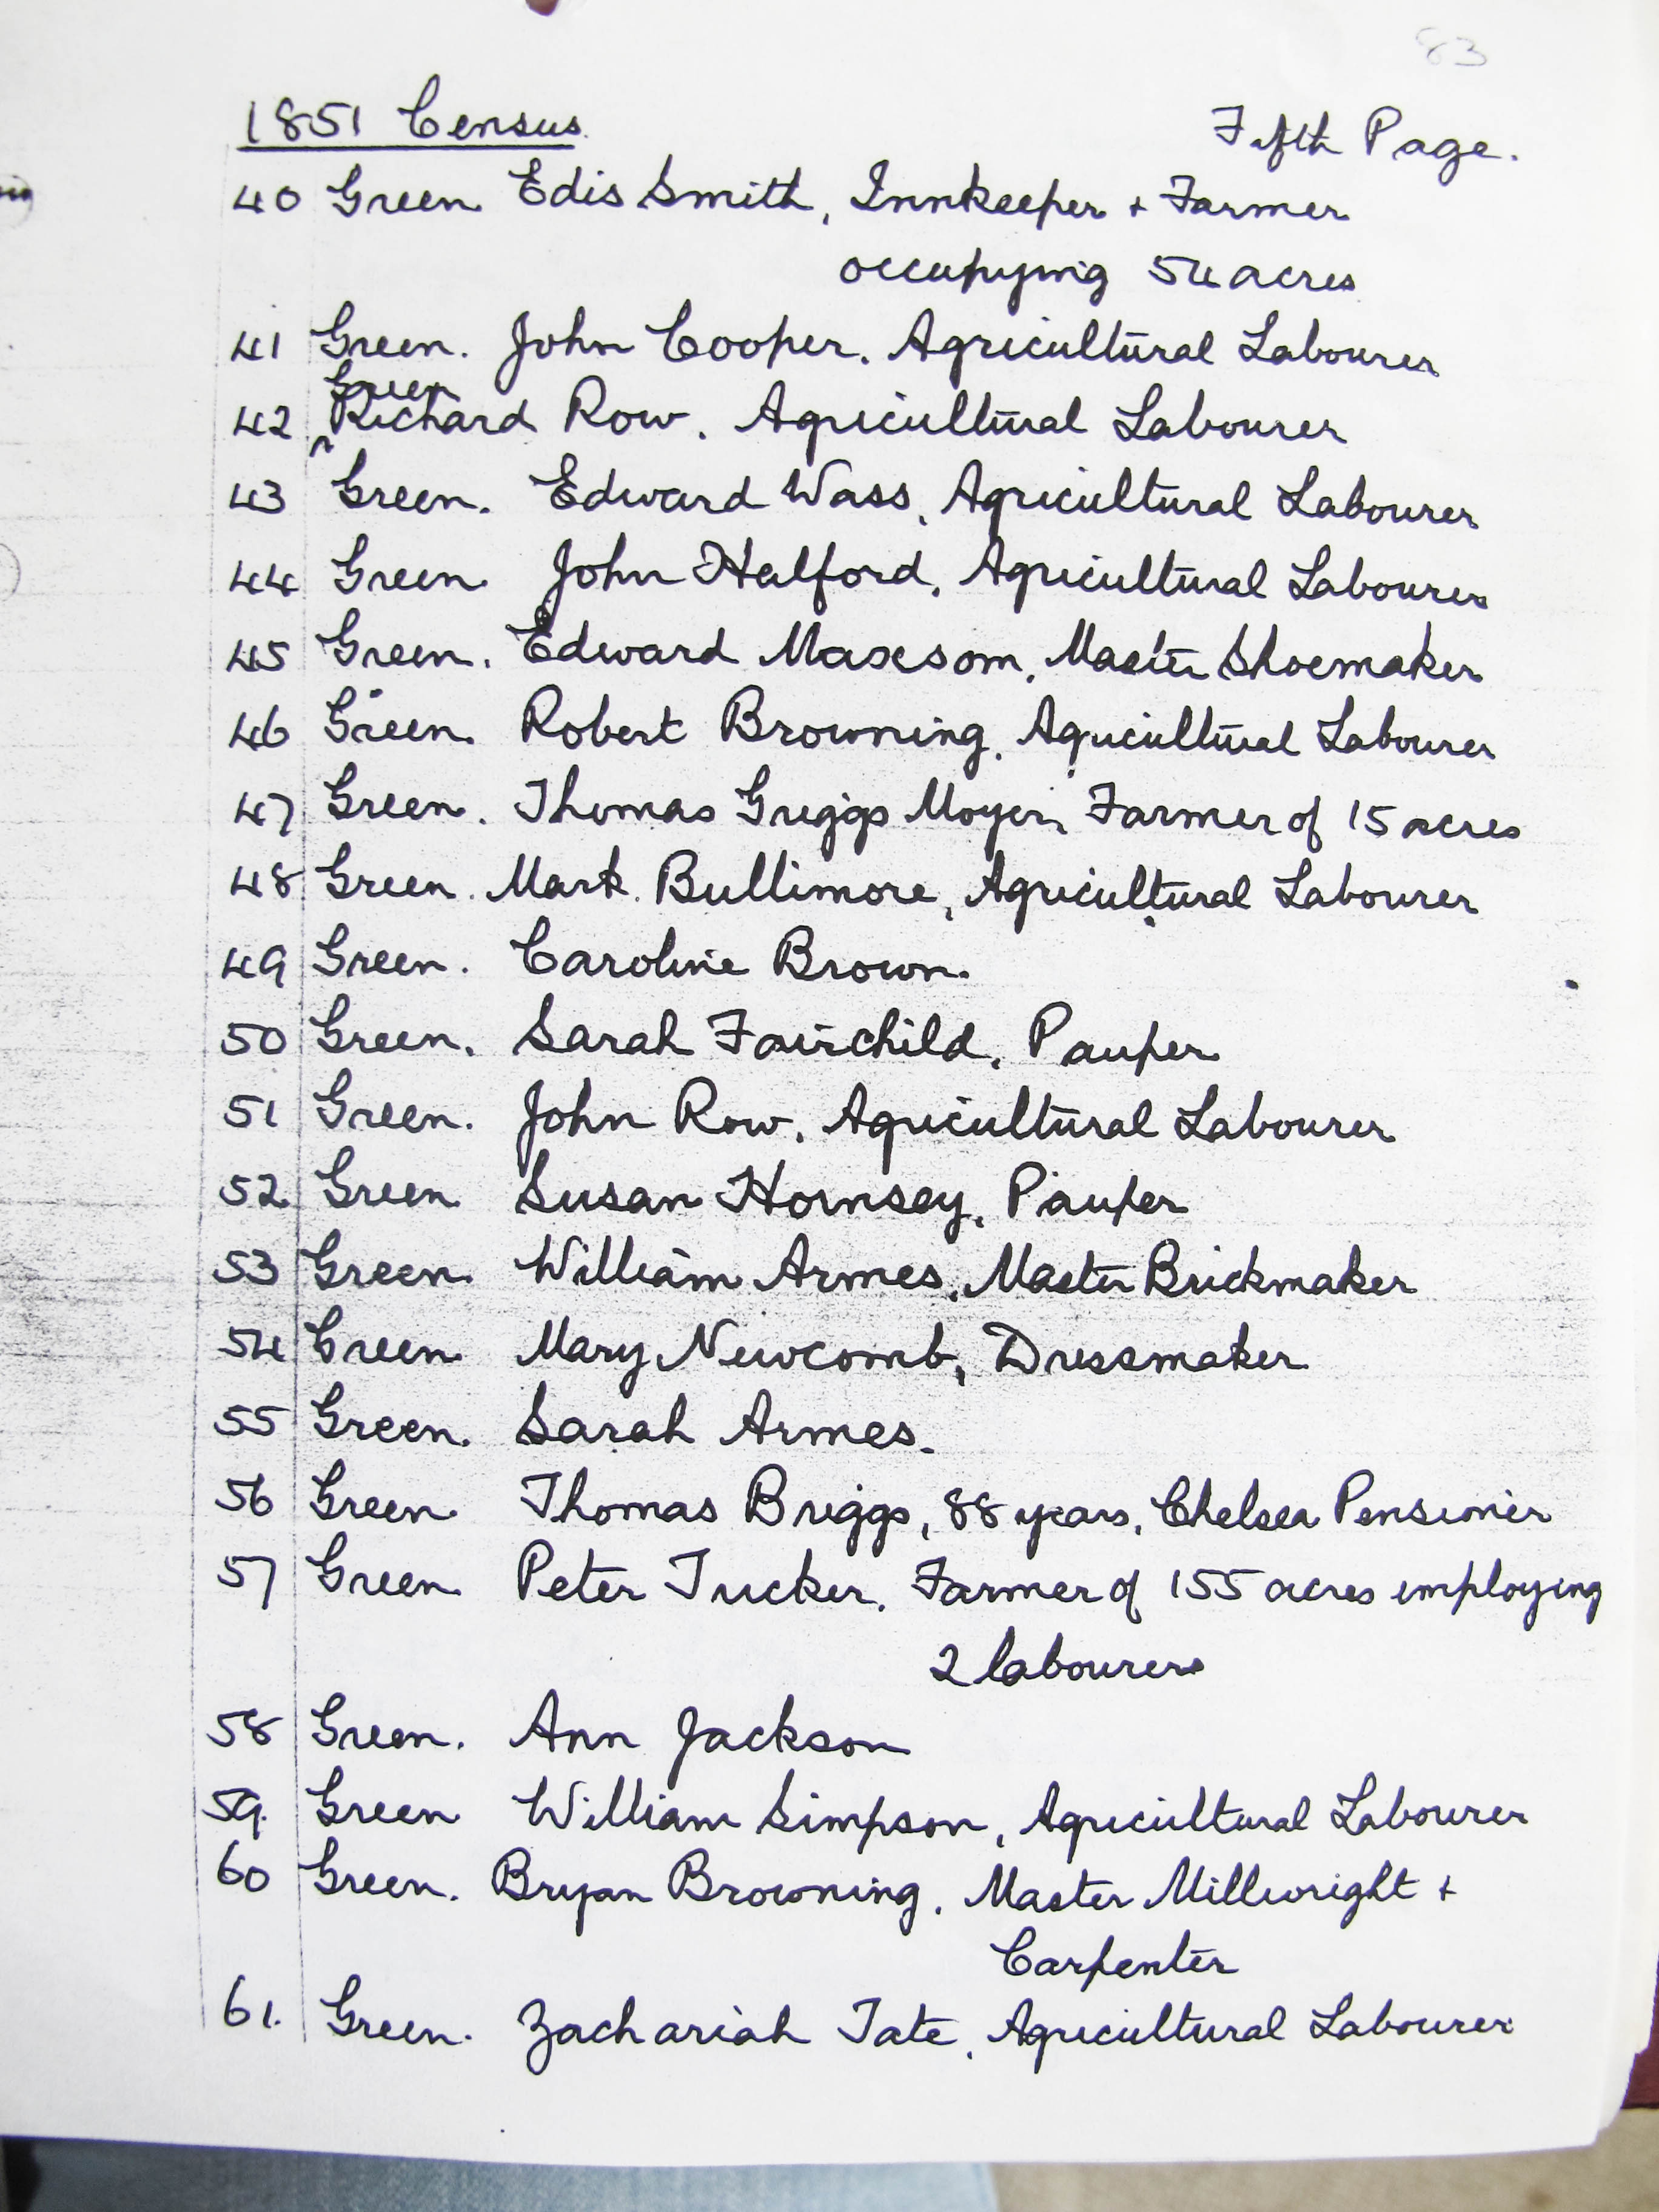 83
1851 Census.
Fifth Page.
40 Green. Edis Smith, Innkeeper + Farmer
occupying 54 acres
41 Green. John Cooper. Agricultural Labourer
Green
42 Richard Row. Agricultural Labourer
43 Green. Edward Wass, Agricultural Labourer
44 Green. John Halford, Agricultural Labourer
45 Green. Edward Maxsom, Master Shoemaker
46 Green. Robert Browning, Agricultural Labourer
47 Green. Thomas Griggs Moyer, Farmer of 15 acres
48 Green. Mark Bullimore, Agricultural Labourer
49 Green. Caroline Brown.
50 Green. Sarah Fairchild, Pauper
51 Green. John Row, Agricultural Labourer
52 Green Susan Hornsey, Pauper
53 Green. William Armes, Master Brickmaker
54 Green Mary Newcomb, Dressmaker
55 Green. Sarah Armes.
56 Green Thomas Briggs, 88 years, Chelsea Pensioner
57 Green Peter Tucker. Farmer of 155 acres employing
2 labourers
58 Green. Ann Jackson
59. Green William Simpson, Agricultural Labourer
60 Green. Bryan Browning. Master Millwright +
Carpenter
61. Green. Zachariah Tate, Agricultural Labourer